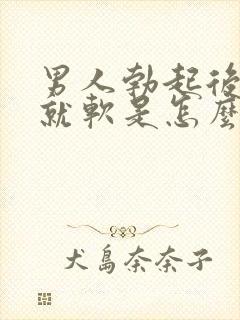 男人勃起後
就軟是怎麼
犬島奈奈子